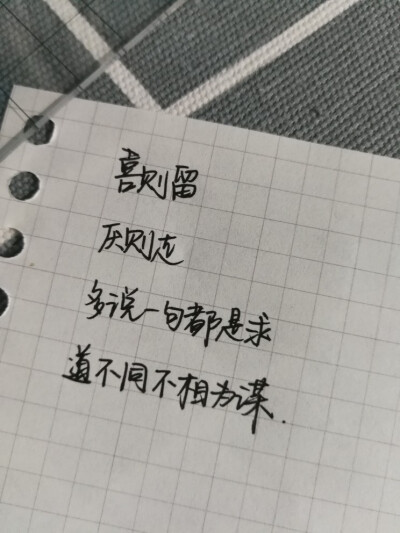 喜则留
厌则走
多说一句都是求
道不同不相为谋.